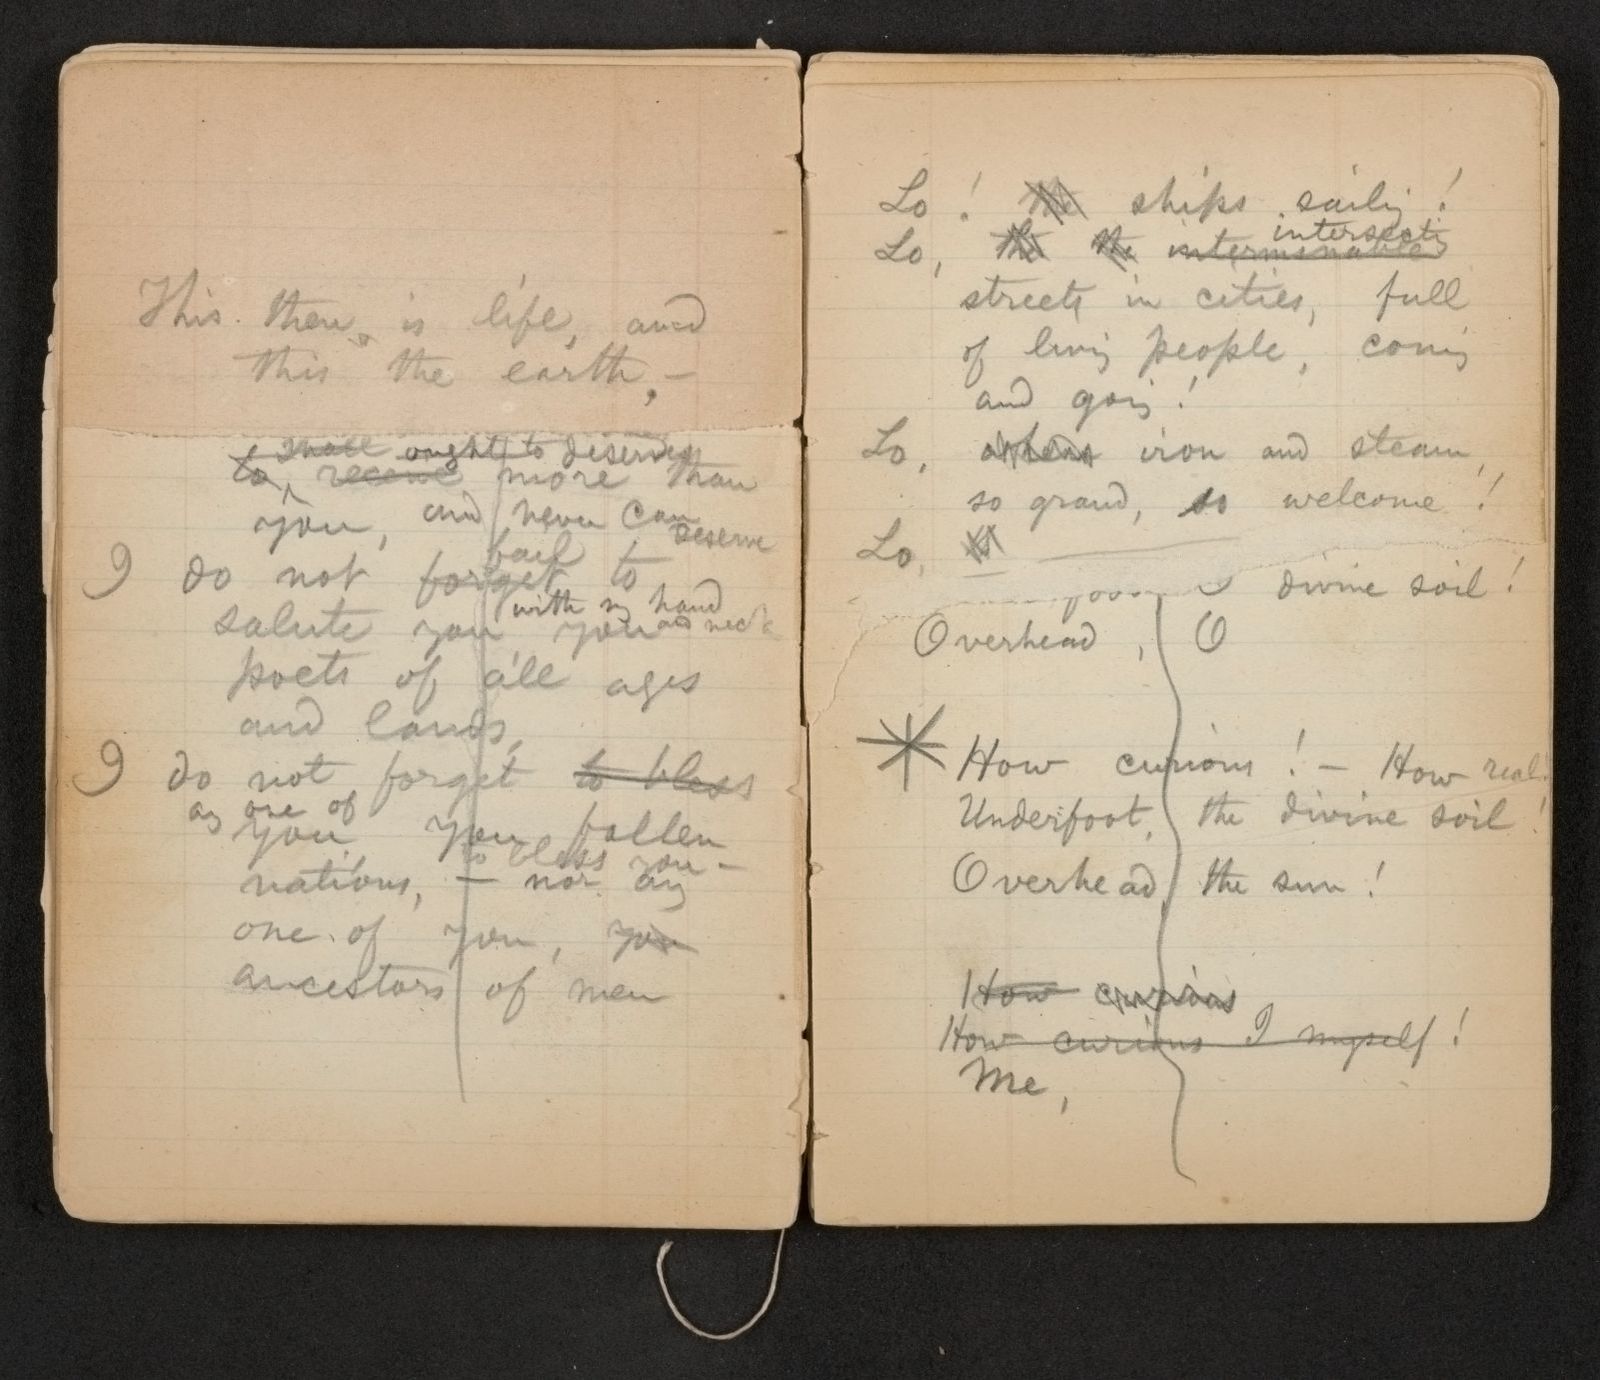 This then, is life, and
this the earth,—
shall ought to deserve
to receive more than
you, and never can
deserve
fail
I do not forget to
with my hand
salute you you and neck
poets of all ages
and lands,
I do not forget to bless
as one of
you you fallen
to bless you —
nations, — nor any
one of you, you
ancestors of men
Lo! the ships sailing!
intersecting
Lo, the the interminable
streets in cities, full
of living people, coming
and going!
Lo, iron and steam,
so grand, so welcome!
Lo,
divine soil!
Overhead, O
How curious! — How real
Underfoot, the divine soil!
Overhead, the sun!
How curious
How curious I myself!
Me,